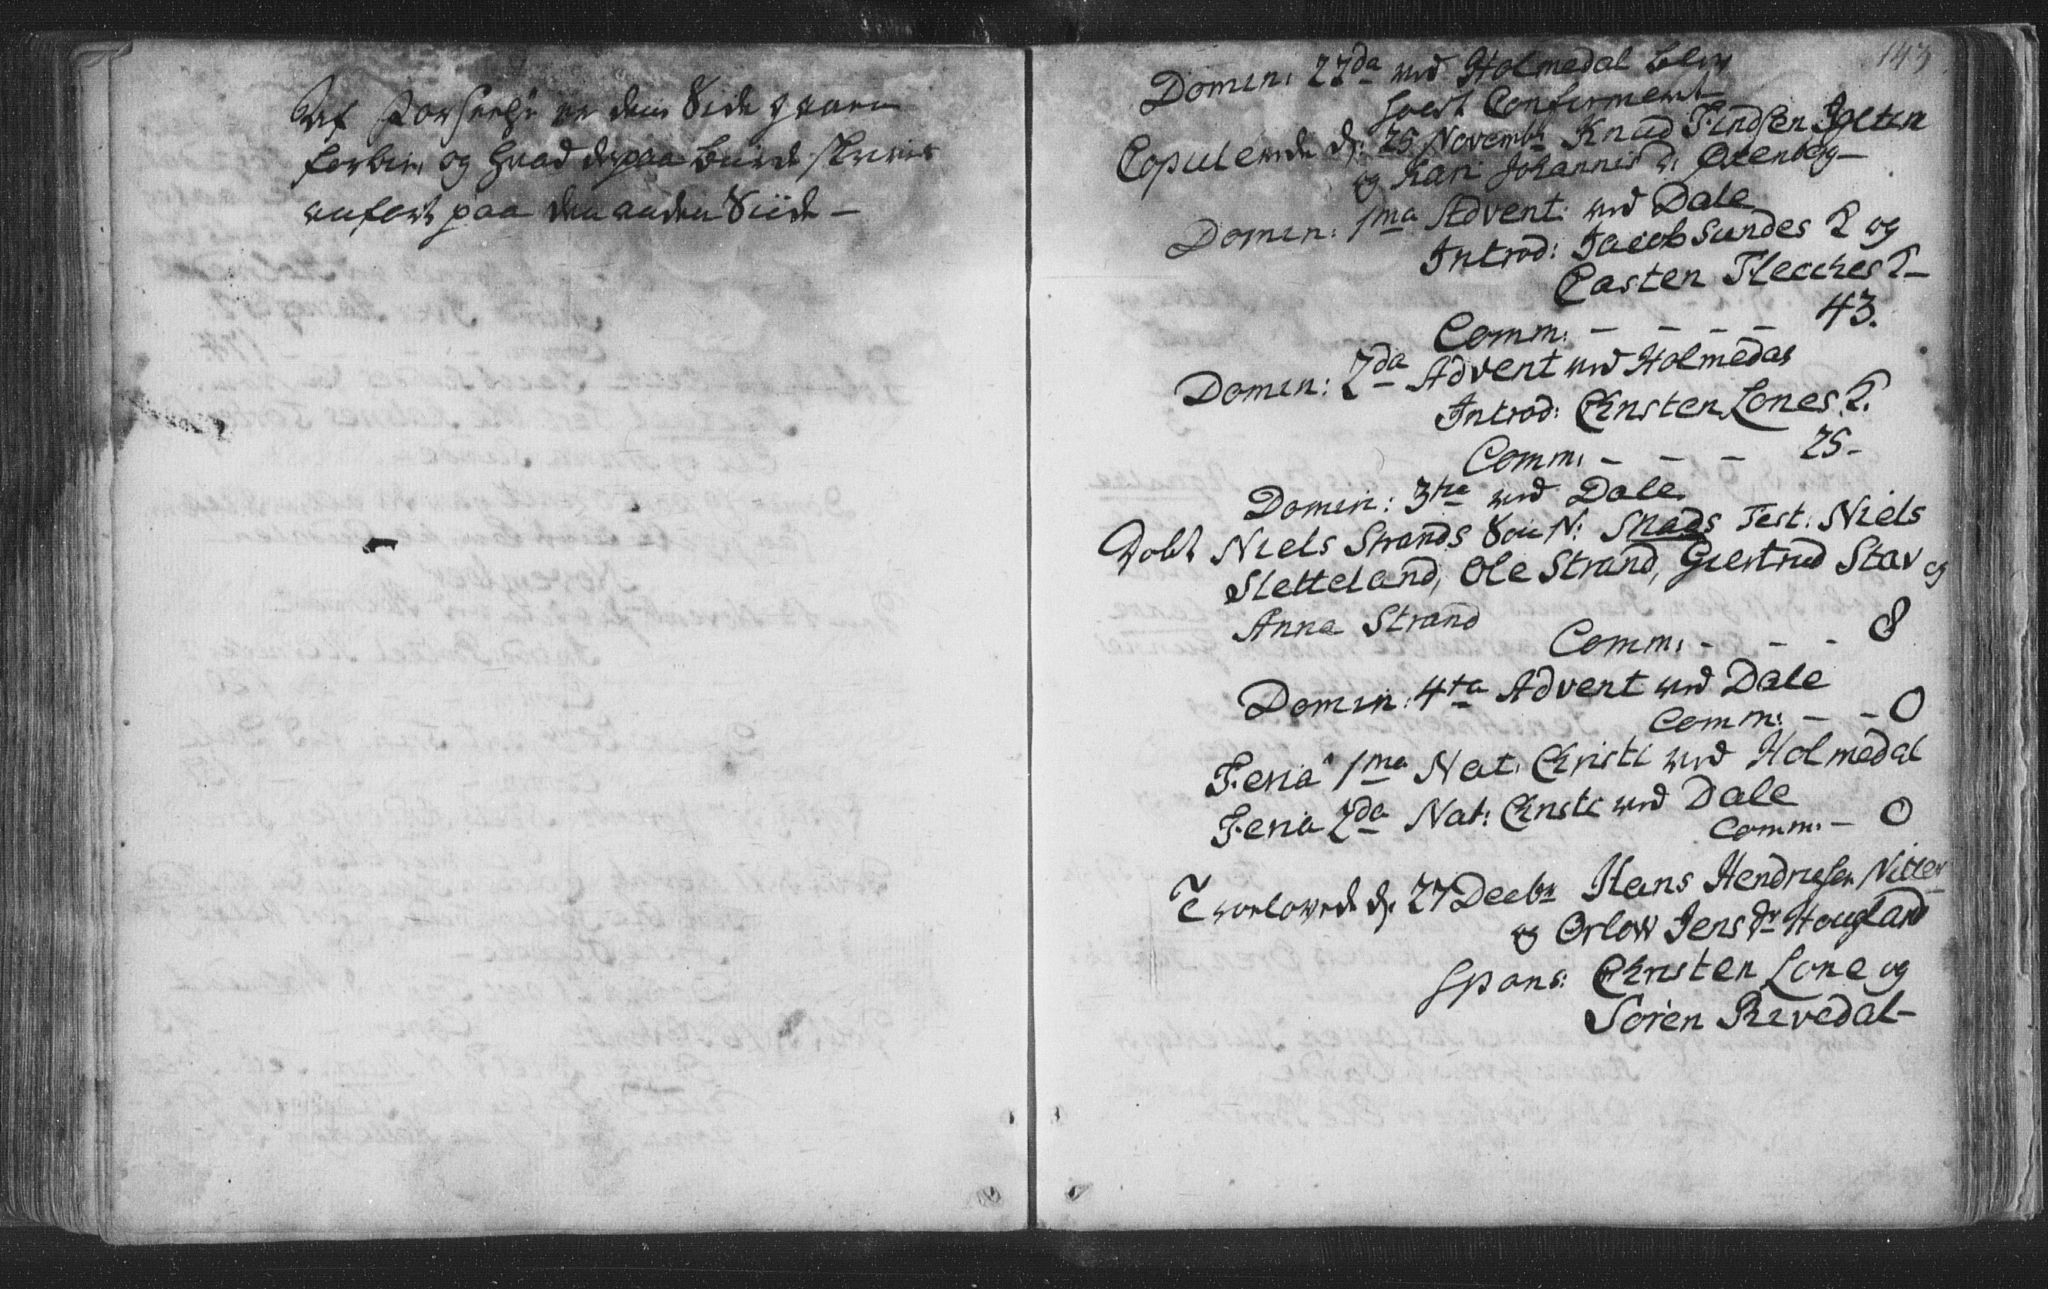 Af Forseelse er den Side gaaen
forbie, og hvad derpaa burde skrives
anført paa den anden Siide –
143
Domin: 27da ved Holmedal blev
holdt Confirment
Copulerede d: 25 Novembr Knud Findsen Jotten
og Kari Johannis d: Øtenberg –
Domin: 1ma Advent: ved Dale
Introd: Jacob Sundes K og
Casten Flecches K –
Comm: – – – – 43.
Domin: 2da Advent ved Holmedal
Introd: Christen Lones K.
Comm: – – – 25 –
Domin: 3tia ved Dale
Døbt Niels Strands Søn N: Mads Test: Niels
Sletteland, Ole Strand, Giertrud Stav og
Anna Strand
Comm: – – – 8
Domin: 4ta Advent ved Dale
Comm: – – 0
Feria 1ma Nat: Christi ved Holmedal
Feria 2da Nat: Christi ved Dale
Comm: – 0
Trorlovede d: 27 Decbr Hans Hendrichsen Nitter
og Orlow Jens dr Hougland
Spons: Christen Lone og
Søren Rivedal –